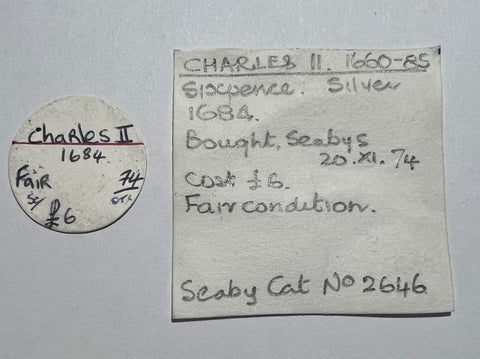 Charles II
1684
Fair
74
£6
CHARLES II. 1660-85
Sixpence. Silver
1684.
Bought, Seabys
20.XI.74
Cost £6.
Fair condition.
Seaby Cat No 2646